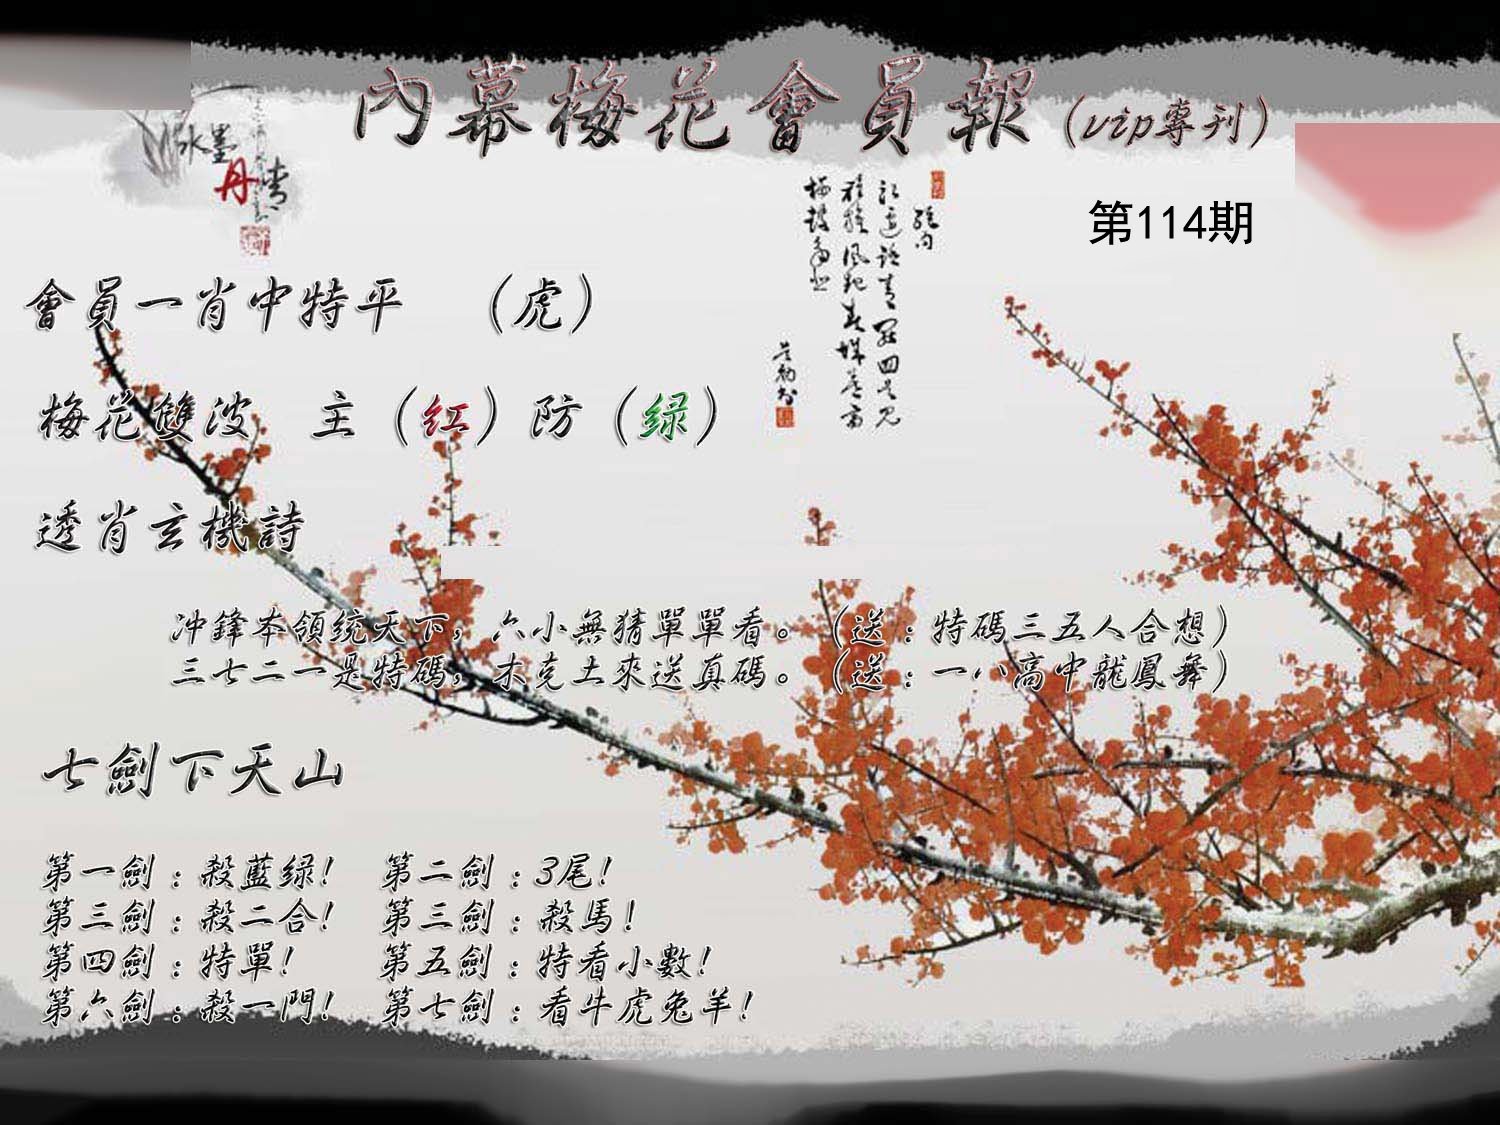 內幕梅花會員報(vip專刊)
水墨
丹情
第114期
會員一肖中特平　（虎）
梅花雙波　主（红）防（绿）
透肖玄機詩
冲鋒本領统天下，六小無猜單單看。（送：特碼三五人合想）
三七二一是特碼，木克土來送真碼。（送：一八高中龍鳳舞）
七劍下天山
第一劍：殺藍绿！　第二劍：3尾！
第三劍：殺二合！　第三劍：殺馬！
第四劍：特單！　第五劍：特看小數！
第六劍：殺一門！　第七劍：看牛虎兔羊！